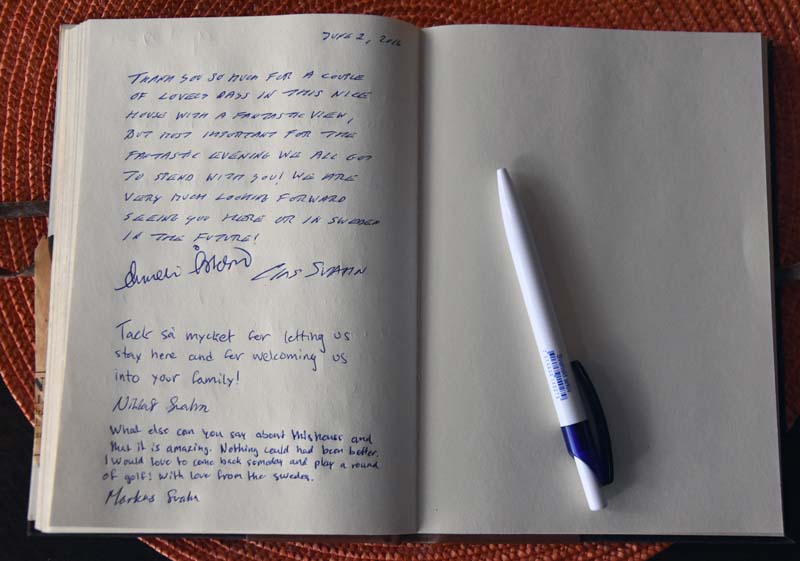 JUNE 2, 2016
THANK YOU SO MUCH FOR A COUPLE
OF LOVELY DAYS IN THIS NICE
HOUSE WITH A FANTASTIC VIEW,
BUT MOST IMPORTANT FOR THE
FANTASTIC EVENING WE ALL GOT
TO SPEND WITH YOU! WE ARE
VERY MUCH LOOKING FORWARD
SEEING YOU HERE OR IN SWEDEN
IN THE FUTURE!
CLAS SVAHN
Tack så mycket for letting us
stay here and for welcoming us
into your family!
Niklas Svahn
What else can you say about this house and
that it is amazing. Nothing could had been better.
I would love to come back someday and play a round
of golf! With love from the swedes.
Markus Svahn